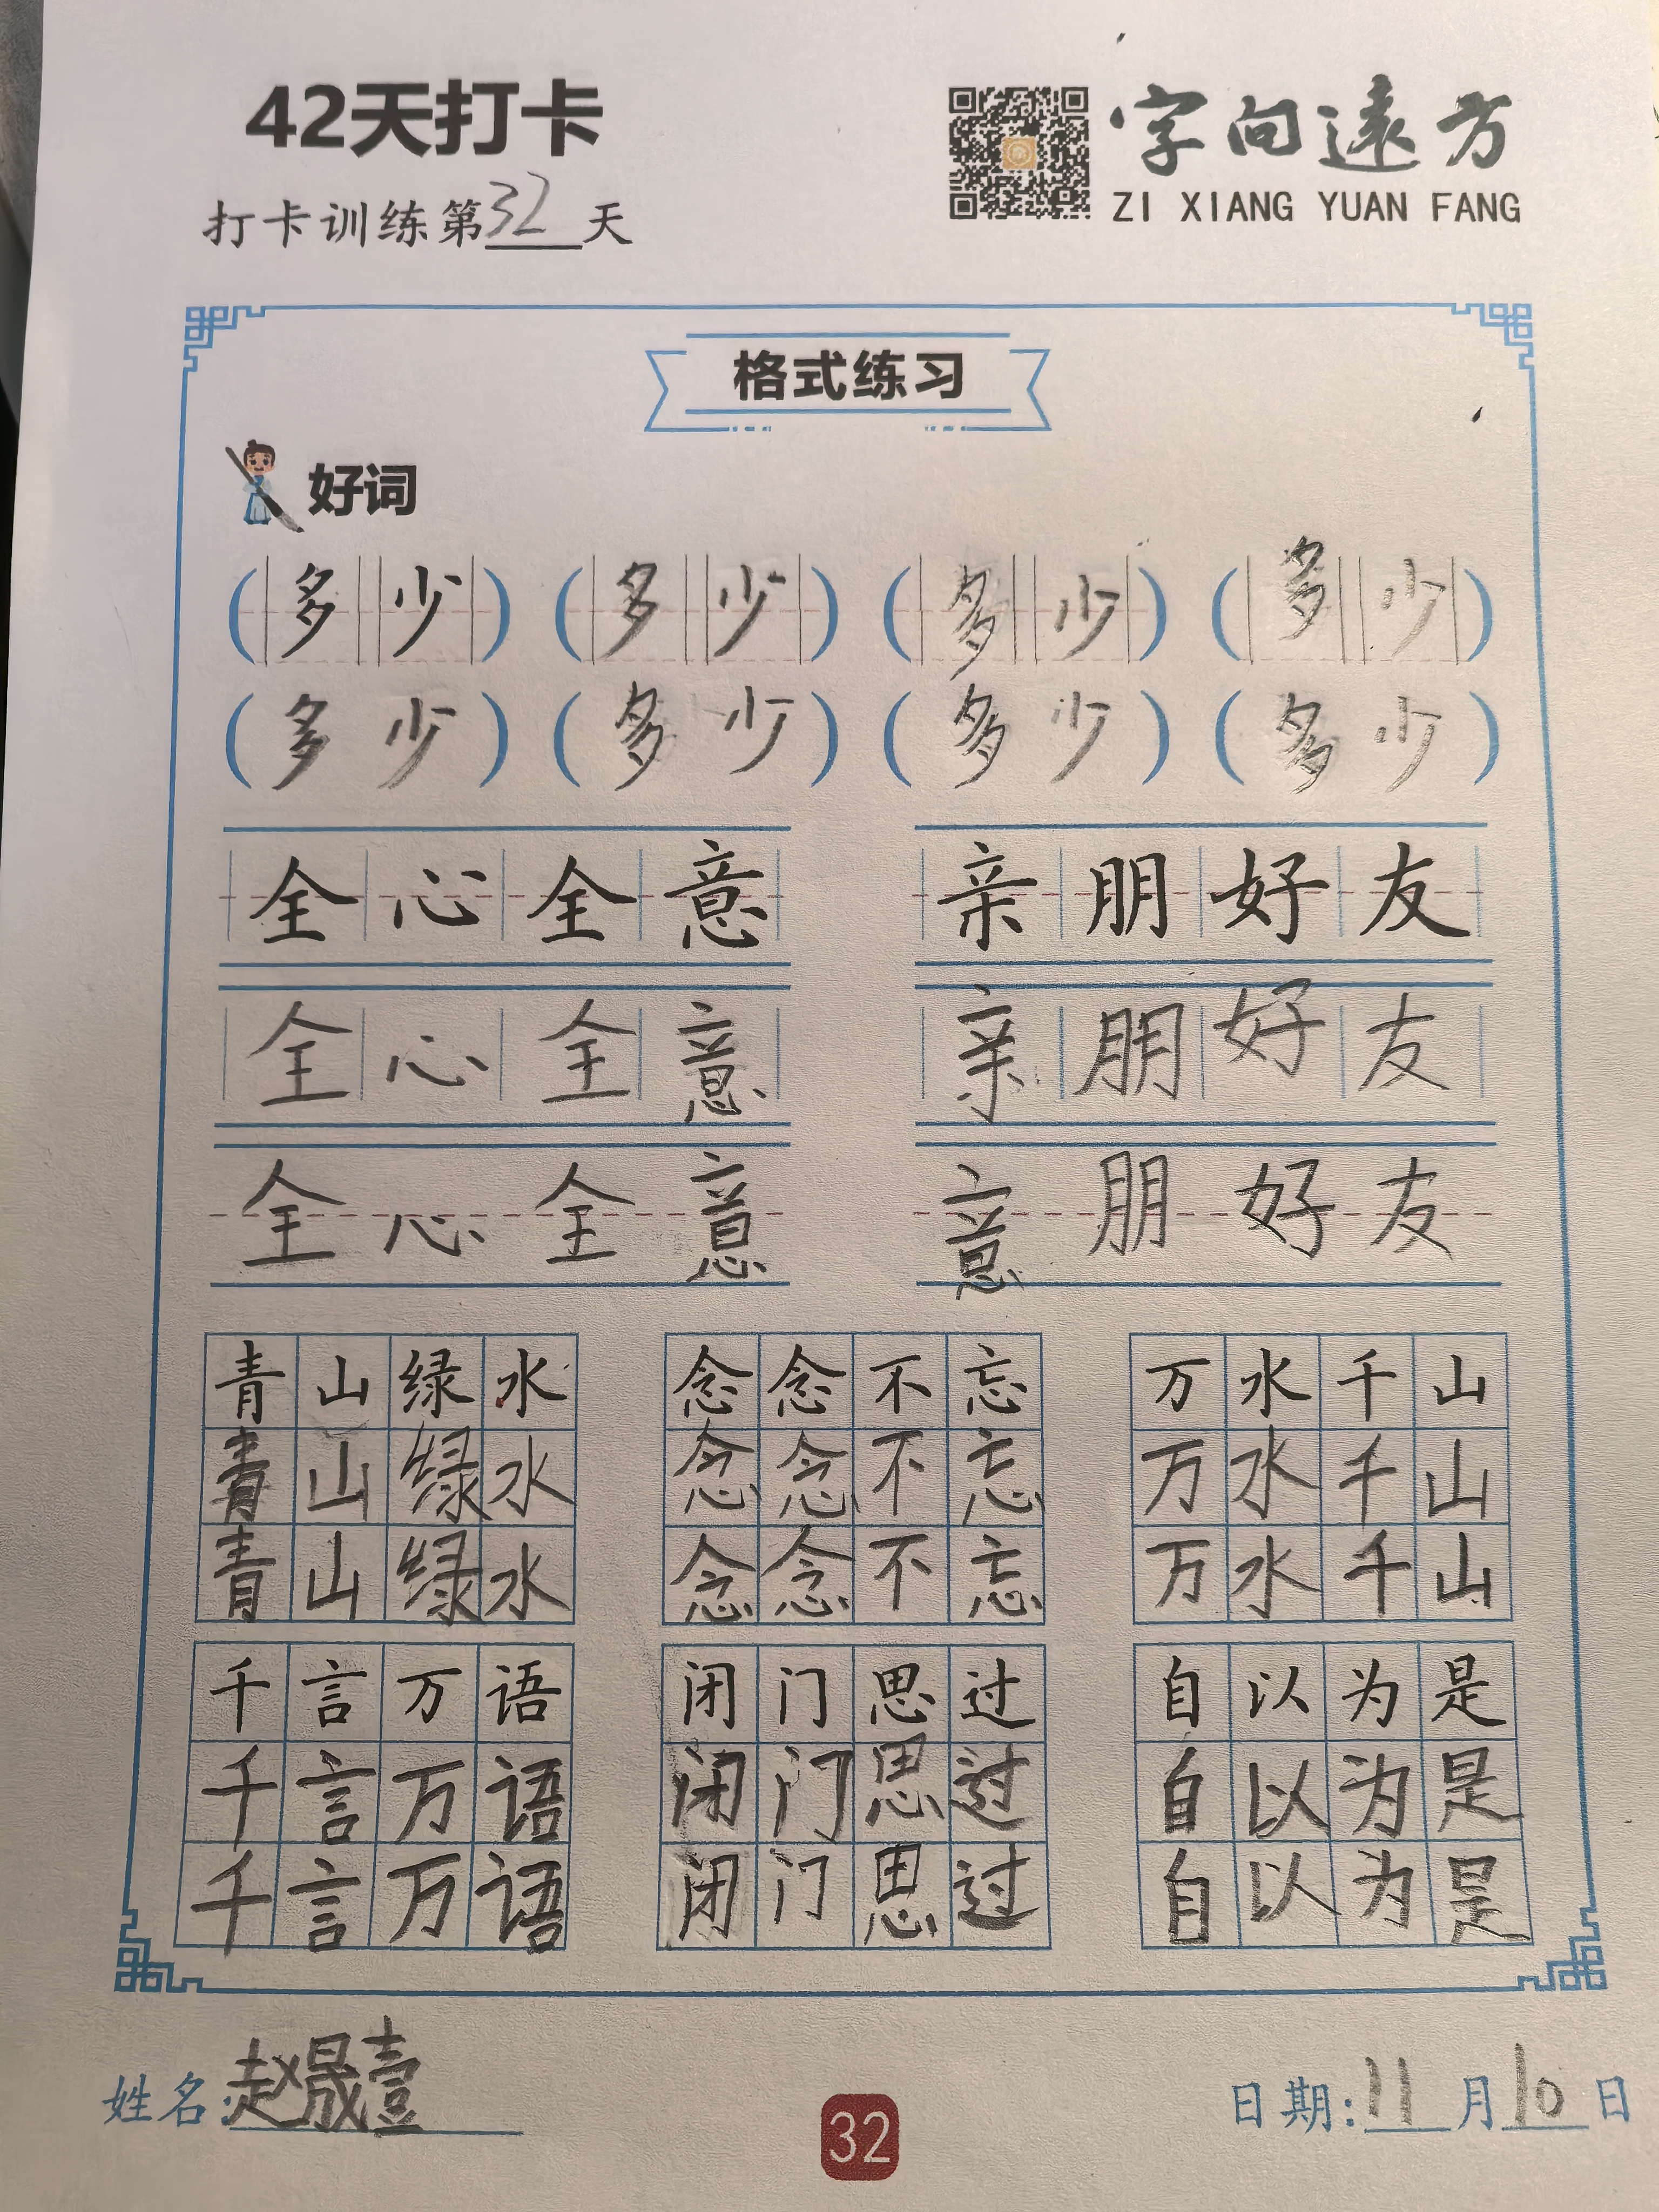 42天打卡
字向遠方
打卡训练第32天
ZI XIANG YUAN FANG
格式练习
好词
(多少) (多少) (多少) (多少)
(多少) (多少) (多少) (多少)
全心全意 亲朋好友
全心全意 亲朋好友
全心全意 意朋好友
青山绿水 念念不忘 万水千山
青山绿水 念念不忘 万水千山
青山绿水 念念不忘 万水千山
千言万语 闭门思过 自以为是
千言万语 闭门思过 自以为是
千言万语 闭门思过 自以为是
姓名:赵晟壹
32
日期:11月10日